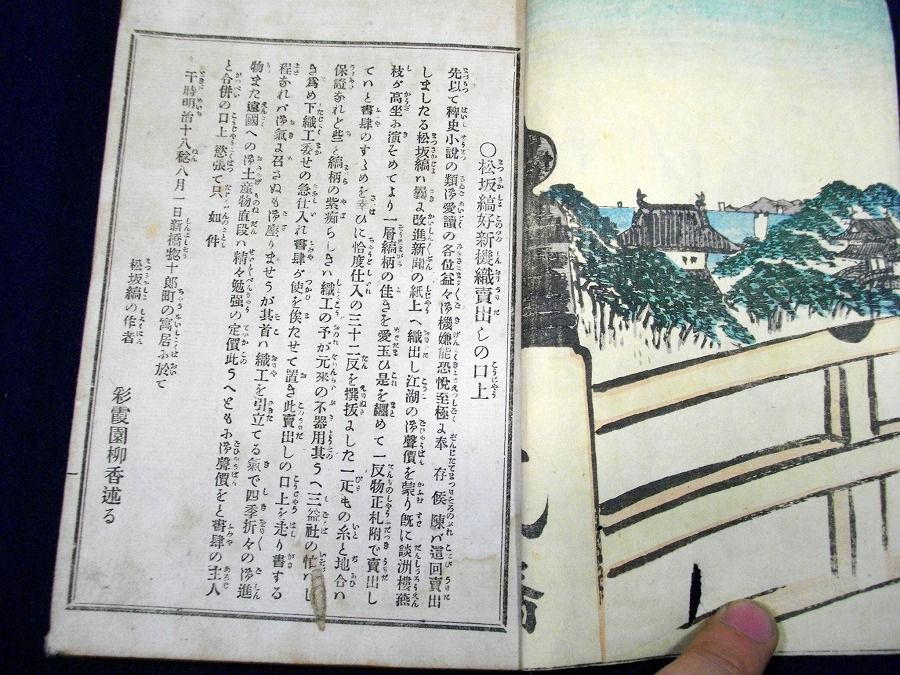 〇松坂縞好新機織賣出しの口上
先以て稗史小説の類御愛讀の各位益々御機嫌能恐悅至極に奉存候陳バ這回賣出
しましたる松坂縞ハ曩に改進新聞の紙上へ織出し江湖の御聲價を蒙り既に談洲樓燕
枝が高坐に演そめてより一層縞柄の佳きを愛玉ひ是を纒めて一反物正札附で賣出し
てハと書肆のすゝめを幸ひに恰度仕入の三十二反を撰拔にした一疋もの糸と地合ハ
保證なれど些と縞柄の柴痴らしきハ織工の予が元來の不器用其うへ三益社の忙がし
き爲め下織工委せの急仕入れ書肆が使を俟たせて置き此賣出しの口上を走り書する
程なれバ御氣に召さぬも御座りませうが其首ハ織工を引立てる氣で四季折々の御進
物また遠國への御土産物直段ハ精々勉強の定價此うへともに御聲價をと書肆の主人
と合併の口上慾張て只如件
于時明治十八稔八月一日新橋惣十郎町の寓居に於て
松坂縞の作者
彩霞園柳香述る